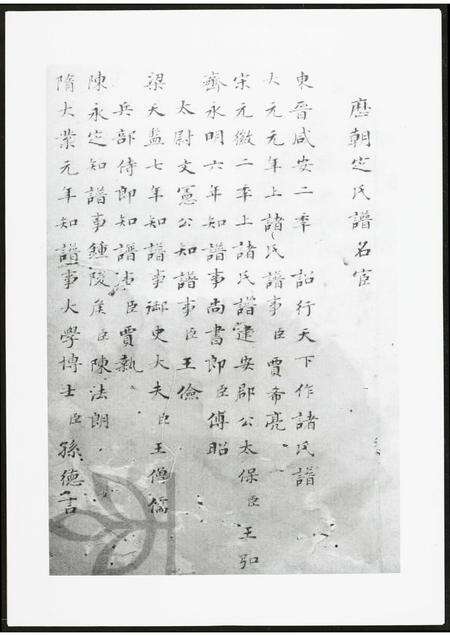 歷朝定氏譜名宦
東晉咸安二年 詔行天下作諸氏譜
大元元年上諸氏譜事臣賈希亮
宋元徽二年上諸氏譜建安郡公太保臣王弘
齊永明六年知譜事尚書郎臣傅昭
太尉文憲公知譜事臣王儉
梁天監七年知譜事御史大夫臣王僧儒
兵部侍郎知譜事臣賈執
陳永定知譜事鍾陵侯臣陳法朗
隋大業元年知譜事大學博士臣孫德言